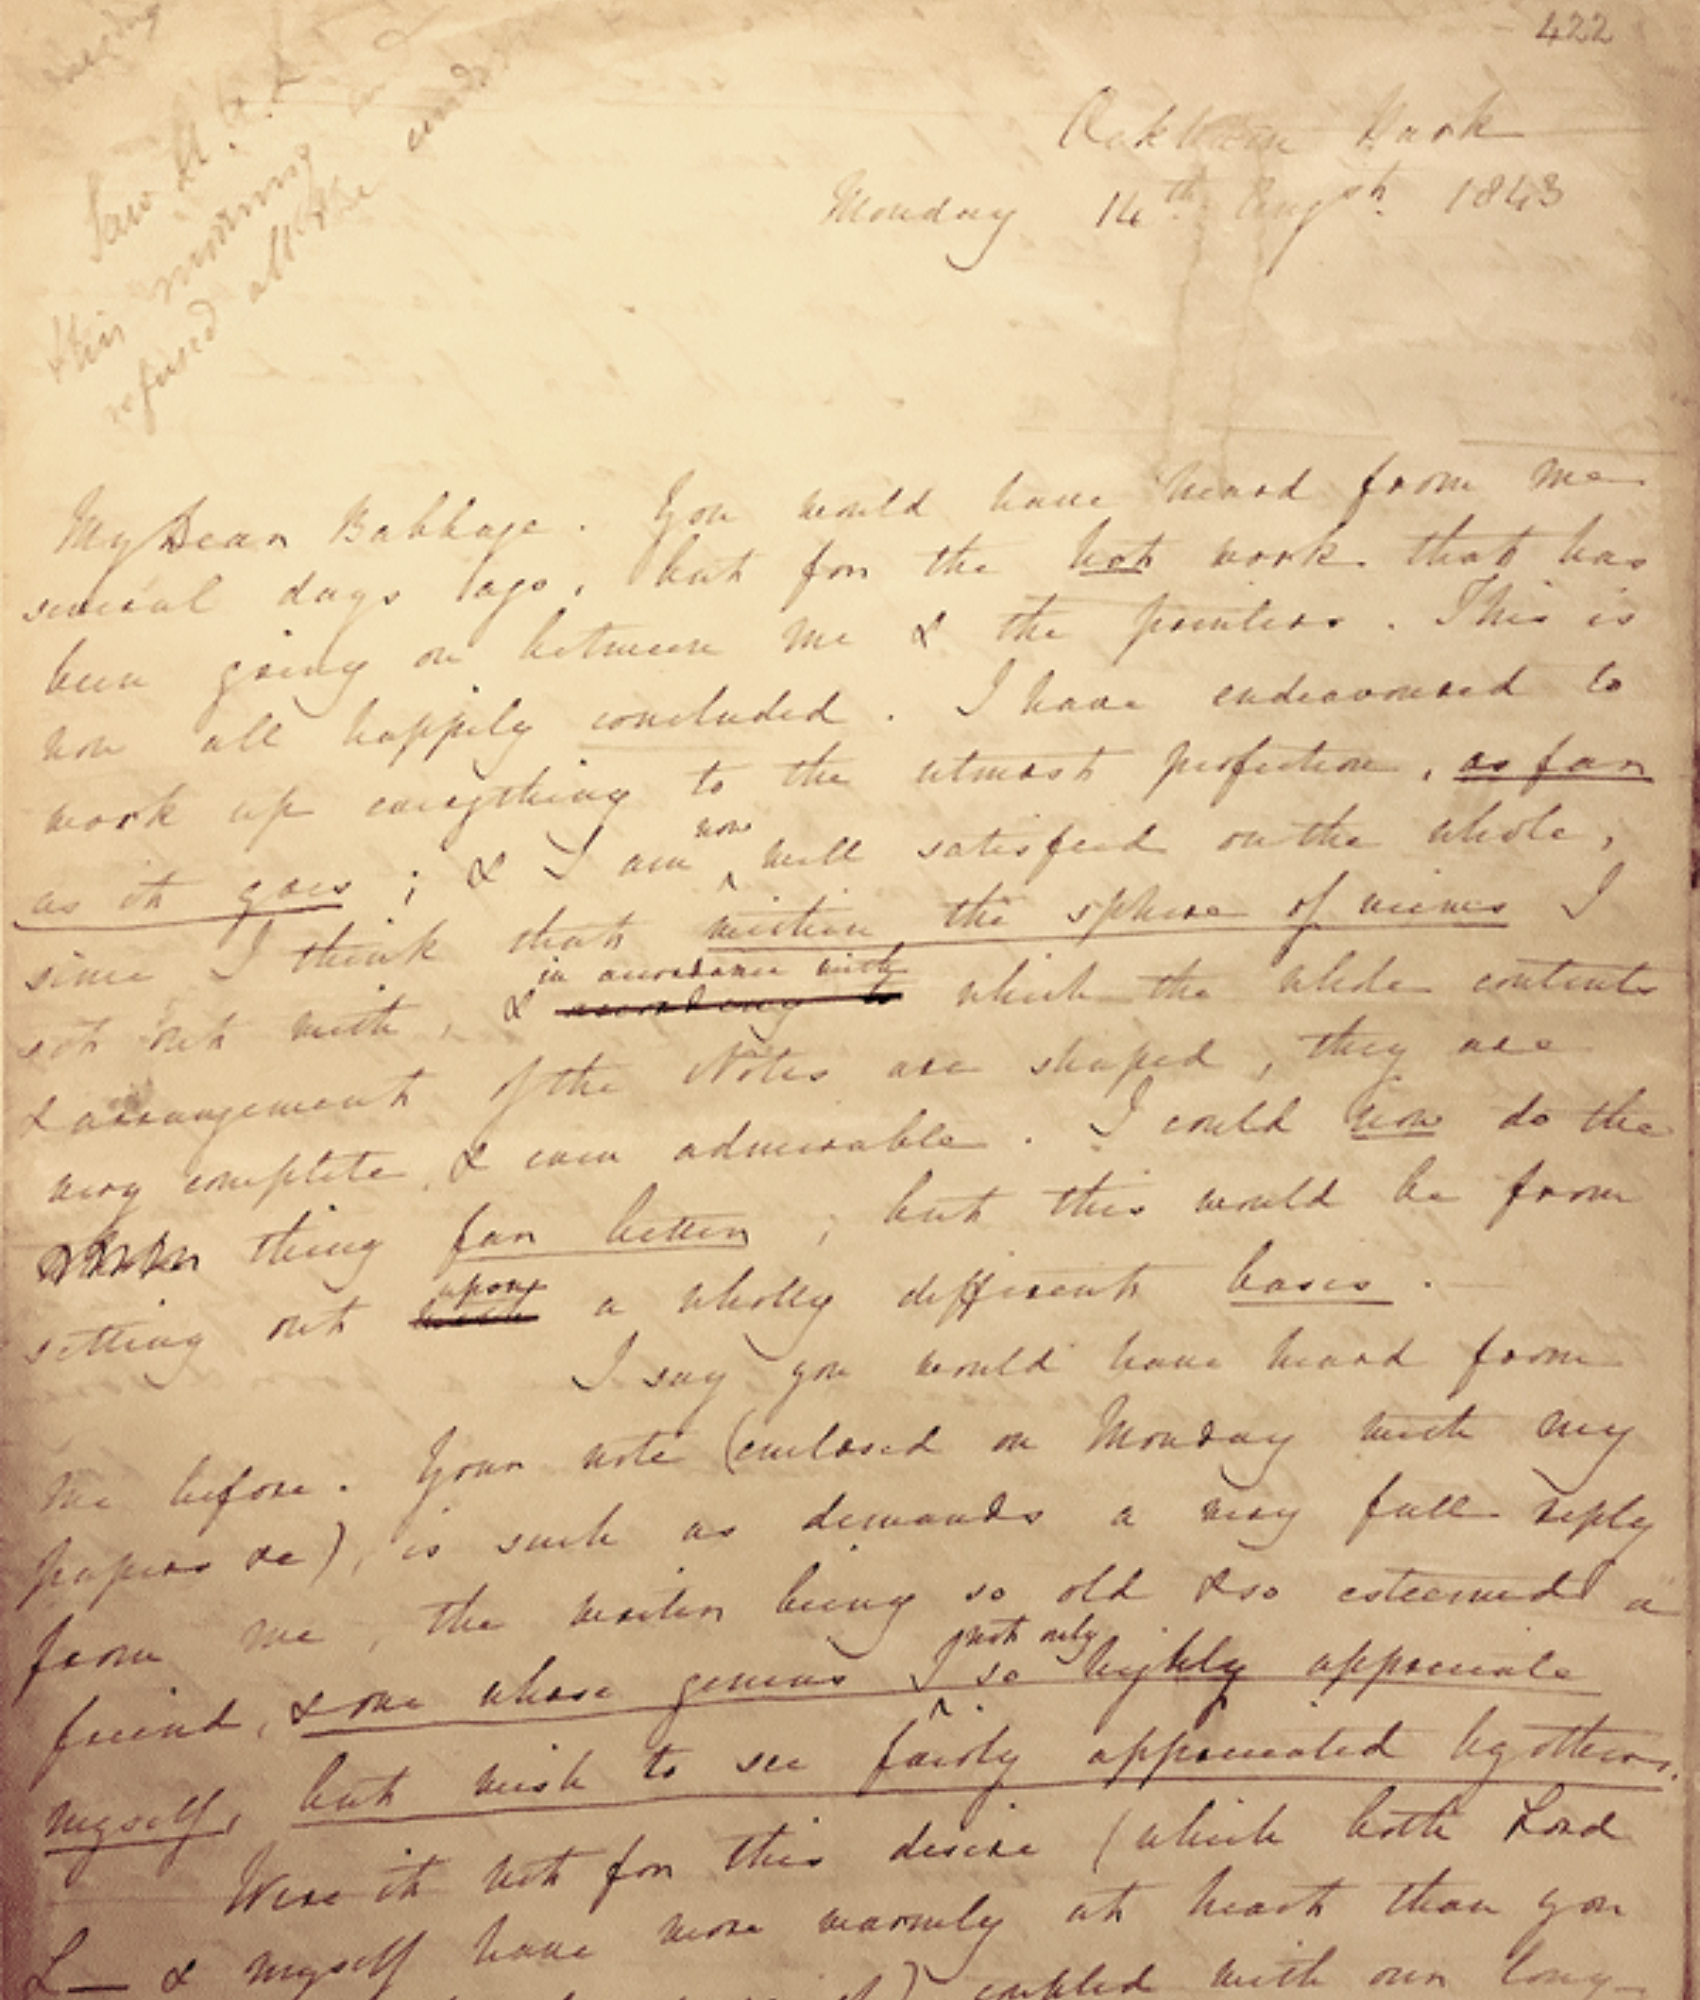 422
Saw A. A. L
this morning
refused all the
Park
Monday 14th Augst 1843
My Dear Babbage. You would have heard from me
several days ago, but for the hot work that has
been going on between me & the printers. This is
now all happily concluded. I have endeavoured to
work up everything to the utmost perfection, as far
as it goes; & I am now well satisfied on the whole,
since I think that within the sphere of views I
set out with, & in accordance with according to which the whole contents
& arrangement of the Notes are shaped, they are
very complete, & even admirable. I could now do the
thing far better; but this would be from
setting out upon a wholly different basis.
I say you would have heard from
me before. Your note (enclosed on Monday with my
papers &c), is such as demands a very full reply
from me, the writer being so old & so esteemed a
friend, & one whose genius I not only so highly appreciate
myself, but wish to see fairly appreciated by others.
Were it not for this desire (which both Lord
L— & myself have more warmly at heart than you
) coupled with our long-